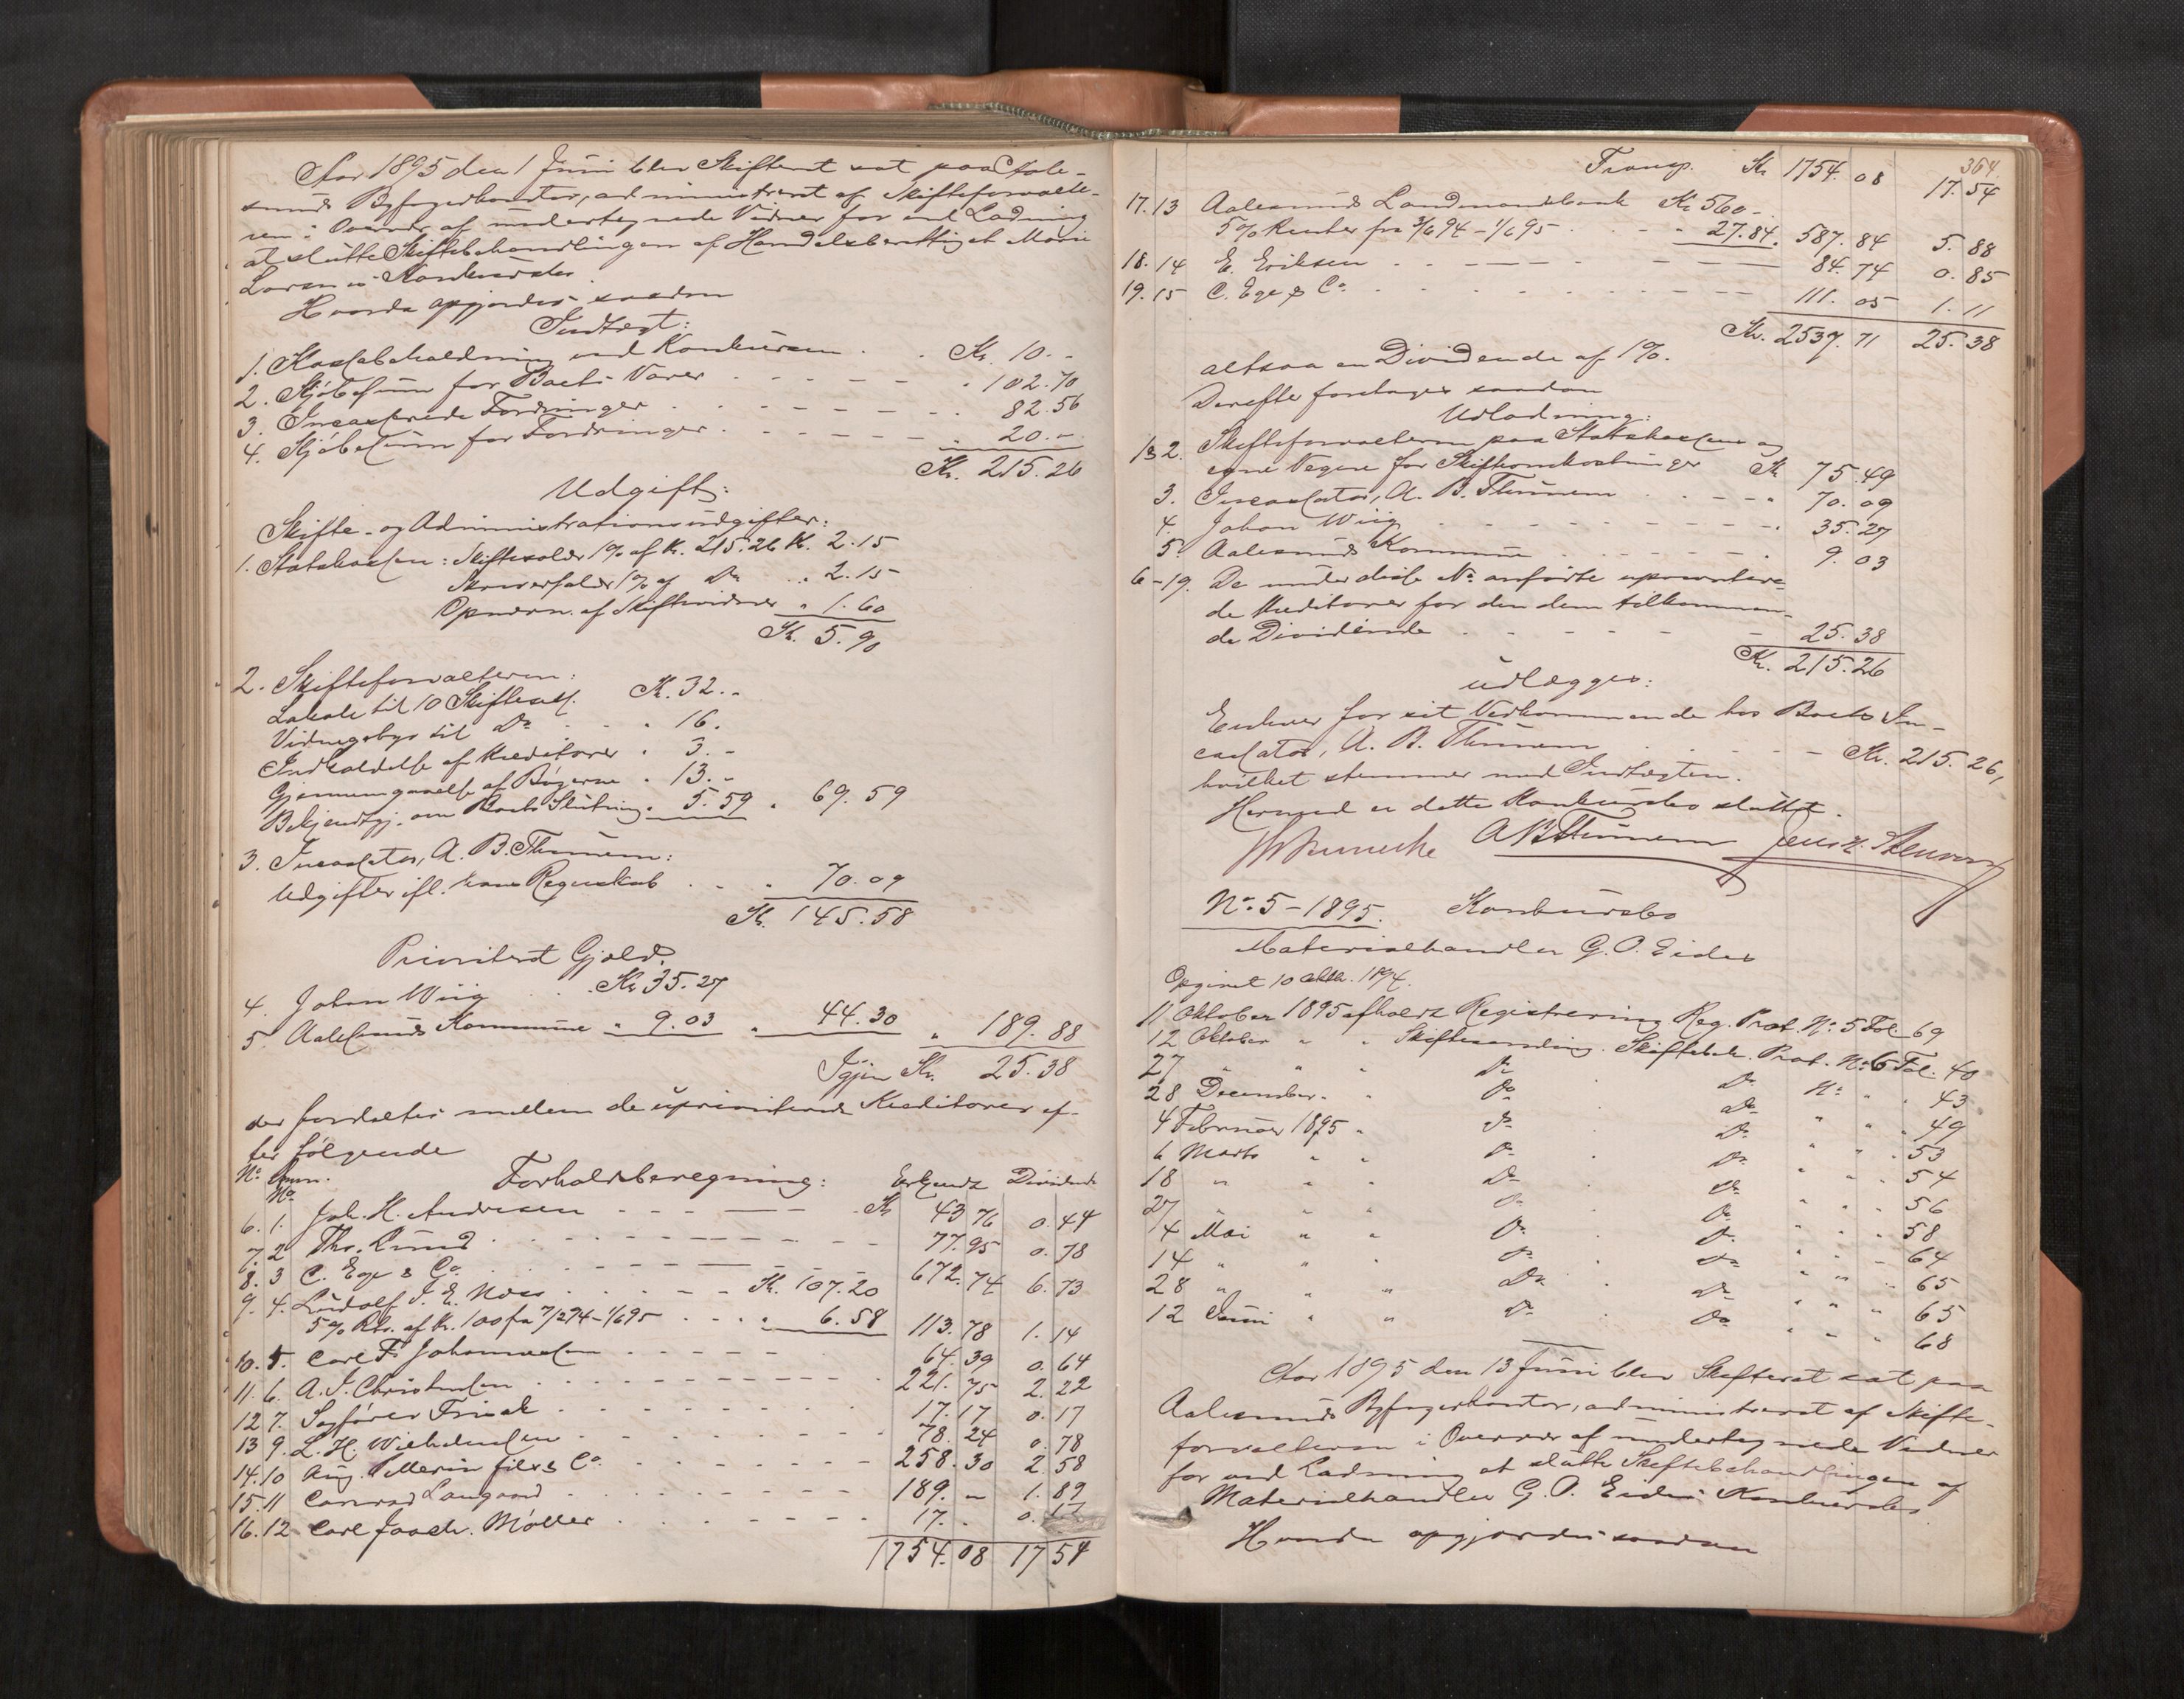 Aar 1895 den 1 Juni blev Skifteret sat paa Aale-
sunds Byfogedkontor, administreret af Skifteforvalte-
ren i Overvær af undertegnede Vidner for ved Ladning
at slutte Skiftebehandlingen af Handelsberettiget Marie
Larsens Konkursbo.
Hvorda opgjordes saadan
Indtægt:
1. Kassabeholdning ved Konkursen . . Kr. 10. -
2. Kjøbesum for Boets Varer - - - - - " 102.70
3. Incasserede Fordringer . - - - - - . 82.56
4. Kjøbesum for Fordringer . - - - - - . 20. -
Kr. 215.26
Udgift:
Skifte- og Administrationsudgifter:
1. Statskassen: Skiftesalær 1% af Kr. 215.26 Kr. 2.15
Skriversalær 1% af Do .. 2.15
Opnævn. af Skiftevidner " 1.60
Kr. 5.90
2. Skifteforvalteren:
Lokale til 10 Skiftesaml. Kr. 32. -
Vidnegebyr til Do - - " 16.
Indkaldelse af Kreditorer " 3. -
Gjennemgaaelse af Bøgerne " 13. -
Bekjendtgj. om Boets Slutning " 5.59 " 69.59
3. Incassator, A. B. Thunem:
Udgifter ifl. hans Regnskab . . " 70.09
Kr. 145.58
Prioriteret Gjæld.
4. Johan Wiig . . Kr 35.27
5. Aalesunds Kommune " 9.03 " 44.30 " 189.88
Igjen Kr. 25.38
der fordeltes mellem de upriviterede Kreditorer ef-
ter følgende
No Anm. No Forholdsberegning: Erkjendt Dividende
6. 1. Joh. H. Andresen - - - - - . Kr 43 76 0.44
7. 2 Ths. Lund . - - - - - - 77.95 0.78
8. 3 C. Ege & Co. - - - - - - 672.74 6.73
9. 4. Lludolf J. E. Moss - - - - Kr. 107.20
5% Rtr. af Kr. 100 fra 7/2 94 - 1/6 95 . . . " 6.58 113.78 1.14
10. 5. Carl F. Johannessen - - - - - 64.39 0.64
11. 6. A. J. Christensen . - - - - - - 221.75 2.22
12 7. Sagfører Frisak . - - - - 17.17 0.17
13 9. L. H. Wilhelmsen . - - - - 78.24 0.78
14. 10 Aug. Pellerin fils & Co. - - - - - 258.30 2.58
15. 11 Conrad Langaard . - - - - - 189. - 1.89
16. 12 Carl Joach. Møller . - - - - - 17. - 0.17
1754.08 17 54
364.
Transp. Kr 1754.08 17.54
17. 13 Aalesunds Landmandsbank Kr 560 -
5% Renter fra 3/6 94 - 1/6 95 . - - " 27.84. 587.84 5.88
18. 14 E. Eriksen . . - - - - - 84.74 0.85
19. 15 C. Ege & Co. . - - - - - 111.05 1.11
Kr. 2537.71 25.38
altsaa en Dividende af 1%.
Derefter foretages saadan
Udlodning:
1&2. Skifteforvalteren paa Statskassens og
egne Vegne for Skifteomkostninger Kr 75.49
3. Incassator, A. B. Thunem . . - - " 70.09
4. Johan Wiig - - - - - - - " 35.27
5. Aalesunds Kommune - - - - - . 9.03
6-19. De under disse No anførte upriviter-
de Kreditorer for den dem tilkommen-
de Dividende . - - - - 25.38
Kr. 215.26
udlægges:
Enhver for sit Vedkommende hos Boets In-
cassator, A. B. Thunem . . . - - - Kr. 215.26,
hvilket stemmer med Indtægten.
Hermed er dette Konkursbo sluttet.
A B Thunem Jens H.
No. 5 - 1895. Konkursbo
Materialhandler G. O. Eides
Opgivet 10 oktbr. 1894.
11 Oktober 1895 afholdt Registrering Reg. Prot. No. 5 Fol. 69
12 Oktober " " Skiftesamling. Skiftebeh. Prot. No. 6 Fol. 40
27 " " " Do . Do No. " " 43
28 December " " Do . Do " " " 49
4 Februar 1895 " Do . Do " " " 53
6 Marts " " Do . Do " " " 54
18 " " " Do . Do " " " 56
27 " " " Do . Do " " " 58
4 Mai " " Do . Do " " " 64
14 " " " Do . Do " " " 65
28 " " " Do . Do " " " 65
12 Juni " " Do . Do " " " 68
Aar 1895 den 13 Juni blev Skifteret sat paa
Aalesunds Byfogedkontor, administreret af Skifte-
forvalteren i Overvær af undertegnede Vidner
for ved Ladning at slutte Skiftebehandlingen af
Materialhandler G. O. Eides Konkursbo.
Hvorda opgjordes saadan